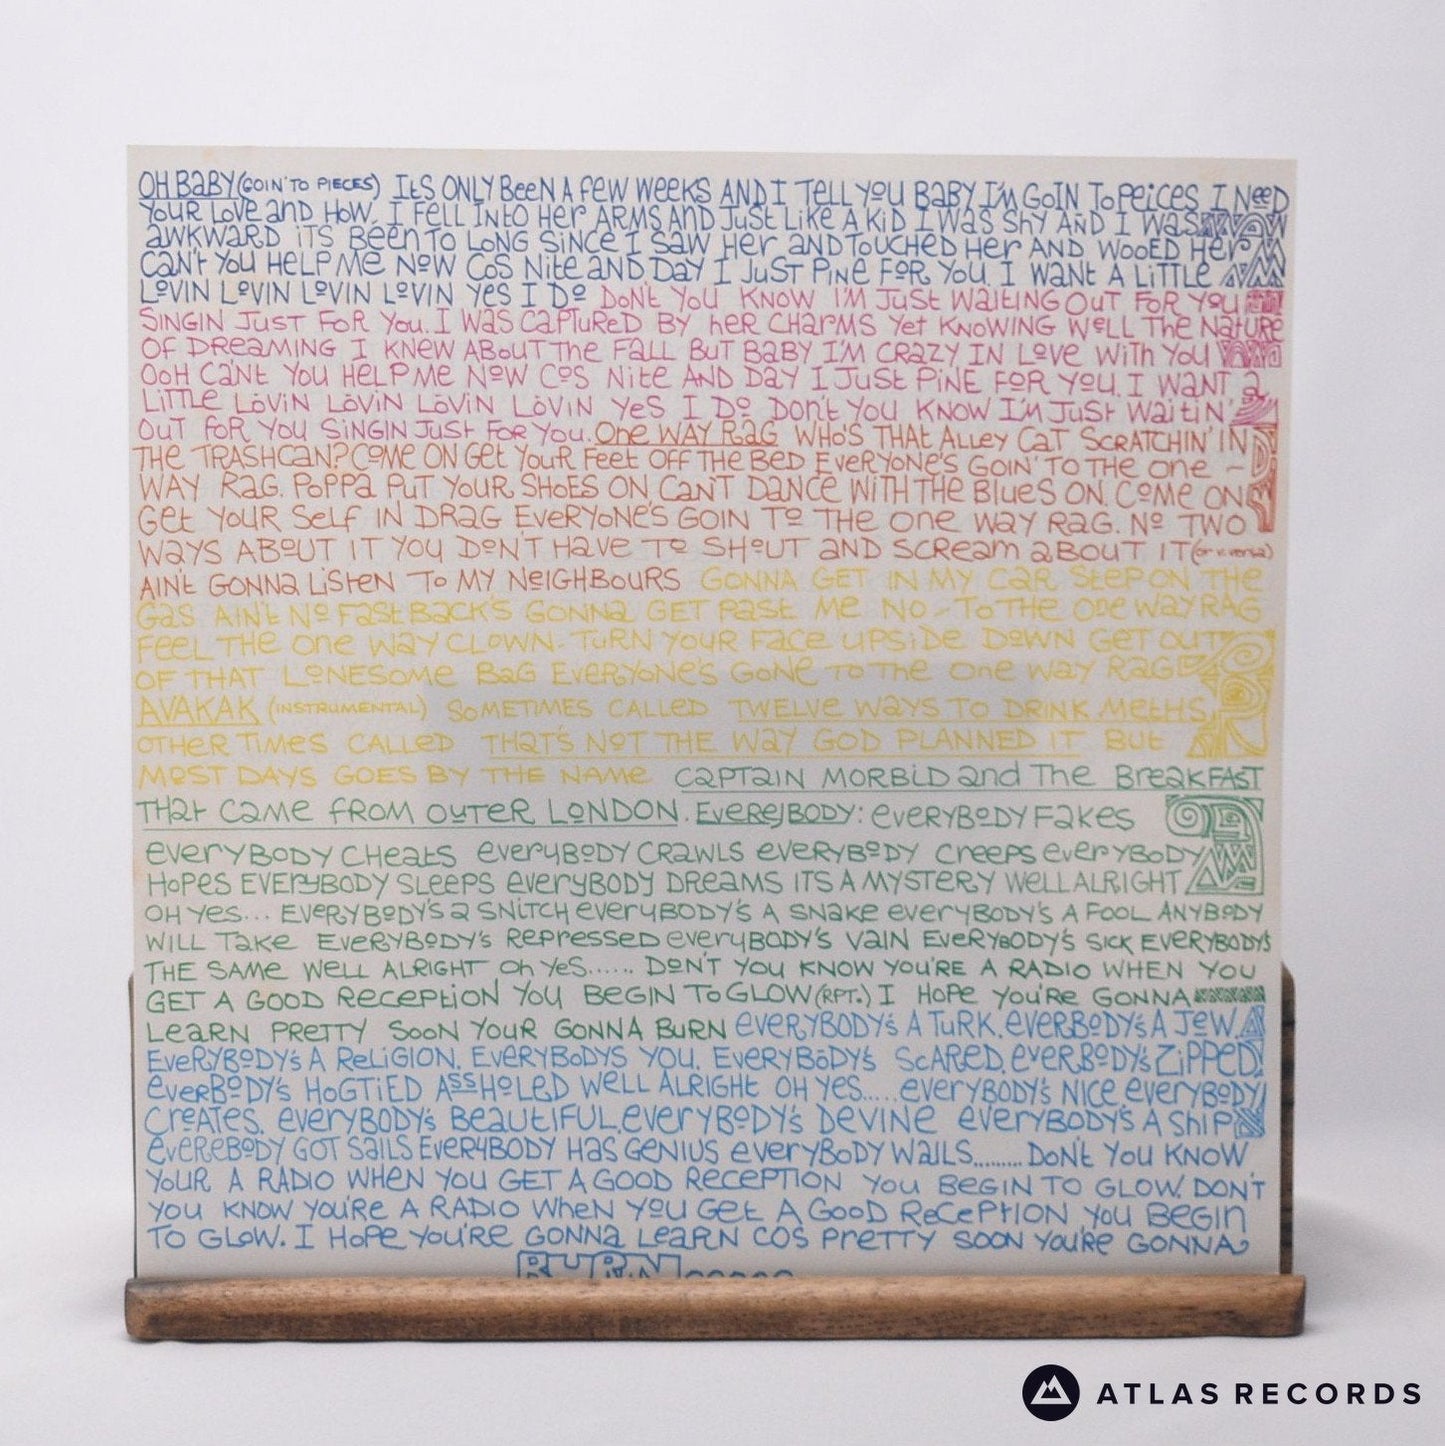 OH BABY (GOIN' TO PIECES) ITS ONLY BEEN A FEW WEEKS AND I TELL YOU BABY I'M GOIN TO PEICES I NEED
YOUR LOVE AND HOW. I FELL INTO HER ARMS AND JUST LIKE A KID I WAS SHY AND I WAS
AWKWARD ITS BEEN TO LONG SINCE I SAW HER AND TOUCHED HER AND WOOED HER
CAN'T YOU HELP ME NOW COS NITE AND DAY I JUST PINE FOR YOU. I WANT A LITTLE
LOVIN LOVIN LOVIN LOVIN YES I DO DON'T YOU KNOW I'M JUST WAITING OUT FOR YOU
SINGIN JUST FOR YOU. I WAS CAPTURED BY HER CHARMS YET KNOWING WELL THE NATURE
OF DREAMING I KNEW ABOUT THE FALL BUT BABY I'M CRAZY IN LOVE WITH YOU
OOH CAN'T YOU HELP ME NOW COS NITE AND DAY I JUST PINE FOR YOU. I WANT A
LITTLE LOVIN LOVIN LOVIN LOVIN YES I DO DON'T YOU KNOW I'M JUST WAITIN'
OUT FOR YOU SINGIN JUST FOR YOU. ONE WAY RAG WHO'S THAT ALLEY CAT SCRATCHIN' IN
THE TRASHCAN? COME ON GET YOUR FEET OFF THE BED EVERYONE'S GOIN' TO THE ONE -
WAY RAG. POPPA PUT YOUR SHOES ON CAN'T DANCE WITH THE BLUES ON. COME ON
GET YOUR SELF IN DRAG EVERYONE'S GOIN TO THE ONE WAY RAG. NO TWO
WAYS ABOUT IT YOU DON'T HAVE TO SHOUT AND SCREAM ABOUT IT (or v. versa)
AIN'T GONNA LISTEN TO MY NEIGHBOURS GONNA GET IN MY CAR STEP ON THE
GAS AIN'T NO FASTBACK'S GONNA GET PAST ME NO - TO THE ONE WAY RAG
FEEL THE ONE WAY CLOWN - TURN YOUR FACE UPSIDE DOWN GET OUT
OF THAT LONESOME BAG EVERYONE'S GONE TO THE ONE WAY RAG
AVAKAK (INSTRUMENTAL) SOMETIMES CALLED TWELVE WAYS TO DRINK METHS,
OTHER TIMES CALLED THAT'S NOT THE WAY GOD PLANNED IT BUT
MOST DAYS GOES BY THE NAME CAPTAIN MORBID AND THE BREAKFAST
THAT CAME FROM OUTER LONDON. EVEREJBODY: EVERYBODY FAKES
EVERYBODY CHEATS EVERYBODY CRAWLS EVERYBODY CREEPS EVERYBODY
HOPES EVERYBODY SLEEPS EVERYBODY DREAMS ITS A MYSTERY WELL ALRIGHT
OH YES... EVERYBODY'S A SNITCH EVERYBODY'S A SNAKE EVERYBODY'S A FOOL ANYBODY
WILL TAKE EVERYBODY'S REPRESSED EVERYBODY'S VAIN EVERYBODY'S SICK EVERYBODY'S
THE SAME WELL ALRIGHT OH YES...... DON'T YOU KNOW YOU'RE A RADIO WHEN YOU
GET A GOOD RECEPTION YOU BEGIN TO GLOW (RPT.) I HOPE YOU'RE GONNA
LEARN PRETTY SOON YOUR GONNA BURN EVERYBODY'S A TURK. EVERBODY'S A JEW.
EVERYBODY'S A RELIGION. EVERYBODYS YOU. EVERYBODY'S SCARED. EVERBODY'S ZIPPED.
EVERBODY'S HOGTIED ASSHOLED WELL ALRIGHT OH YES..... EVERYBODY'S NICE EVERYBODY
CREATES. EVERYBODY'S BEAUTIFUL. EVERYBODY'S DEVINE EVERYBODY'S A SHIP
EVEREBODY GOT SAILS EVERYBODY HAS GENIUS EVERYBODY WAILS......... DON'T YOU KNOW
YOUR A RADIO WHEN YOU GET A GOOD RECEPTION YOU BEGIN TO GLOW. DON'T
YOU KNOW YOU'RE A RADIO WHEN YOU GET A GOOD RECEPTION YOU BEGIN
TO GLOW. I HOPE YOU'RE GONNA LEARN COS PRETTY SOON YOU'RE GONNA
BURN......
ATLAS RECORDS